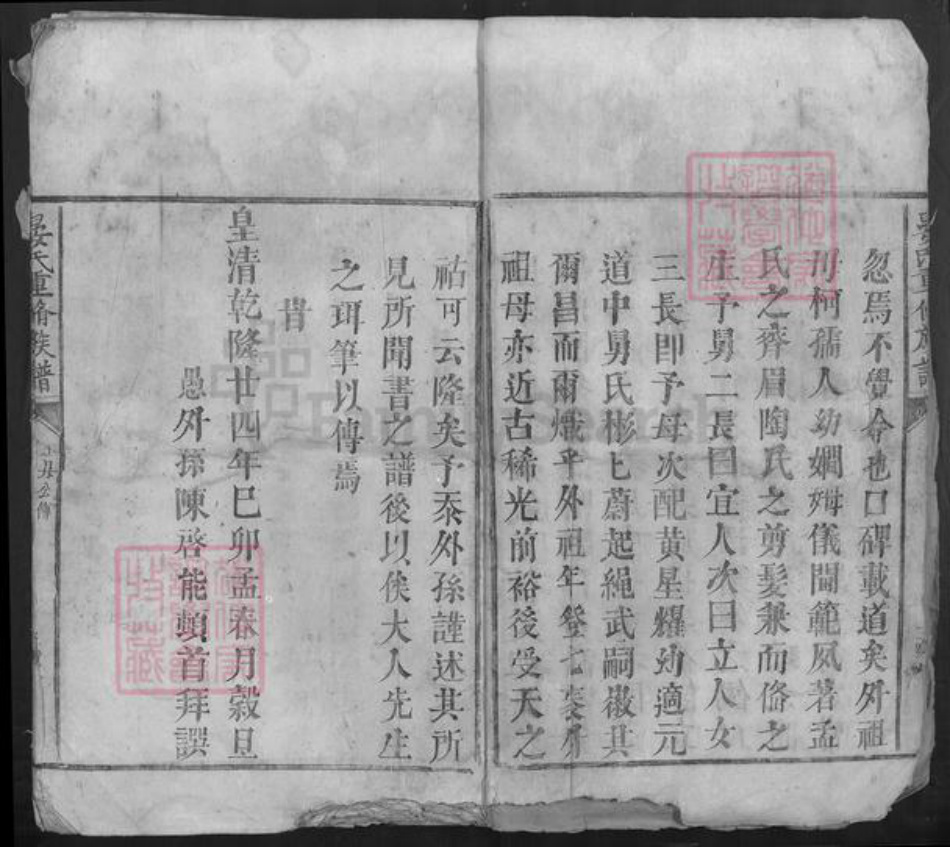 忽焉不覺令也口碑載道矣外祖
母柯孺人幼嫻姆儀閫範夙著孟
氏之齊眉陶氏之剪髮兼而脩之
庄予舅二長曰宜人次曰立人女
三長即予母次配黄星耀幼適元
道中舅氏彬匕蔚起繩武嗣徽其
爾昌而爾熾乎外祖年登七袠外
祖母亦近古稀光前裕後受天之
祜可云隆矣予忝外孫謹述其所
見所聞書之譜後以俟大人先生
之珥筆以傳焉
旹
皇清乾隆廿四年巳卯孟春月穀旦
愚外孫陳啓能頓首拜譔
晏氏重脩族譜
FamilySearch